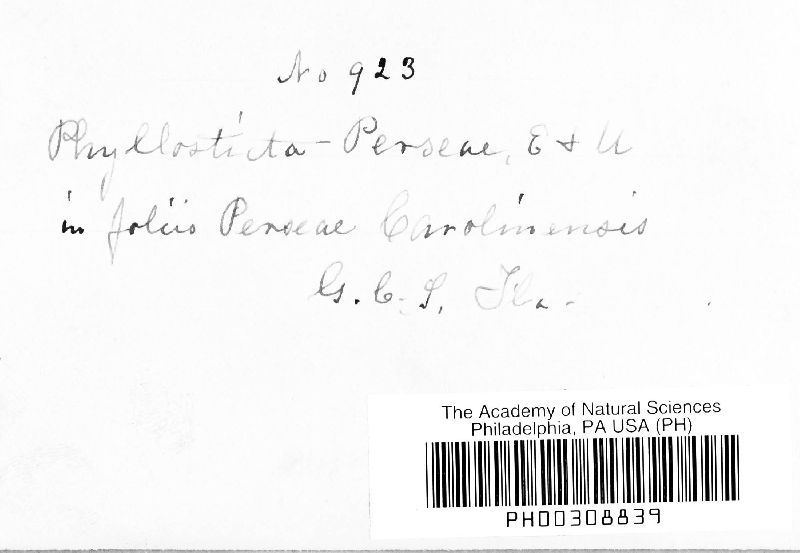 No 923
Phyllosticta - Perseae, E & M
in foliis Perseae Carolinensis
G. C. S, Fla -
The Academy of Natural Sciences
Philadelphia, PA USA (PH)
PH00308839